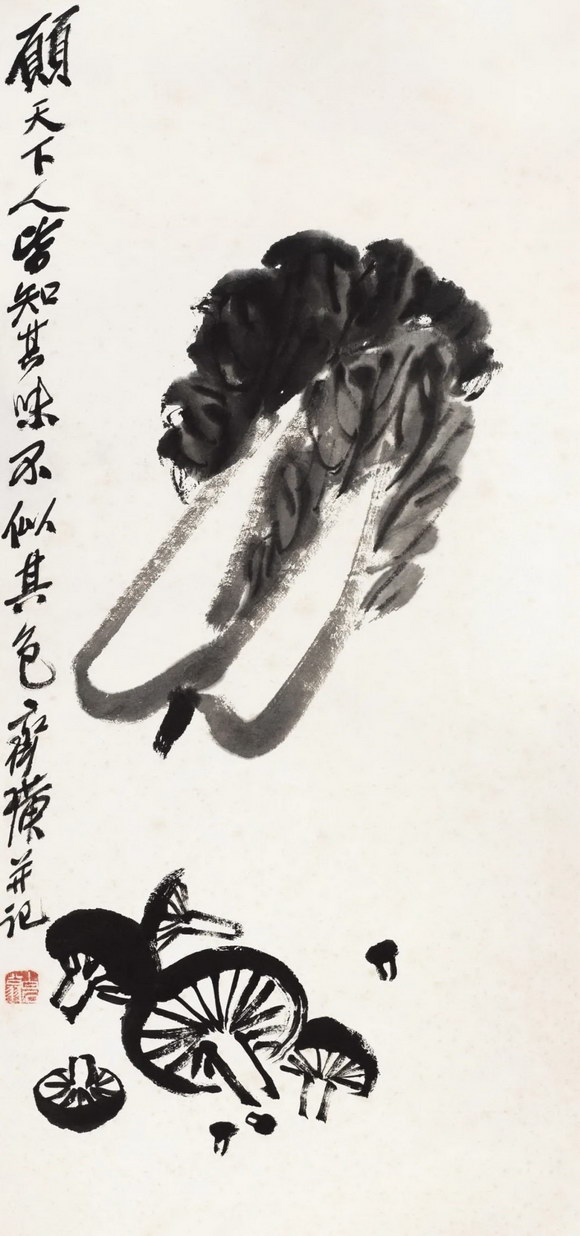 願天下人皆知其味不似其色齊璜并記